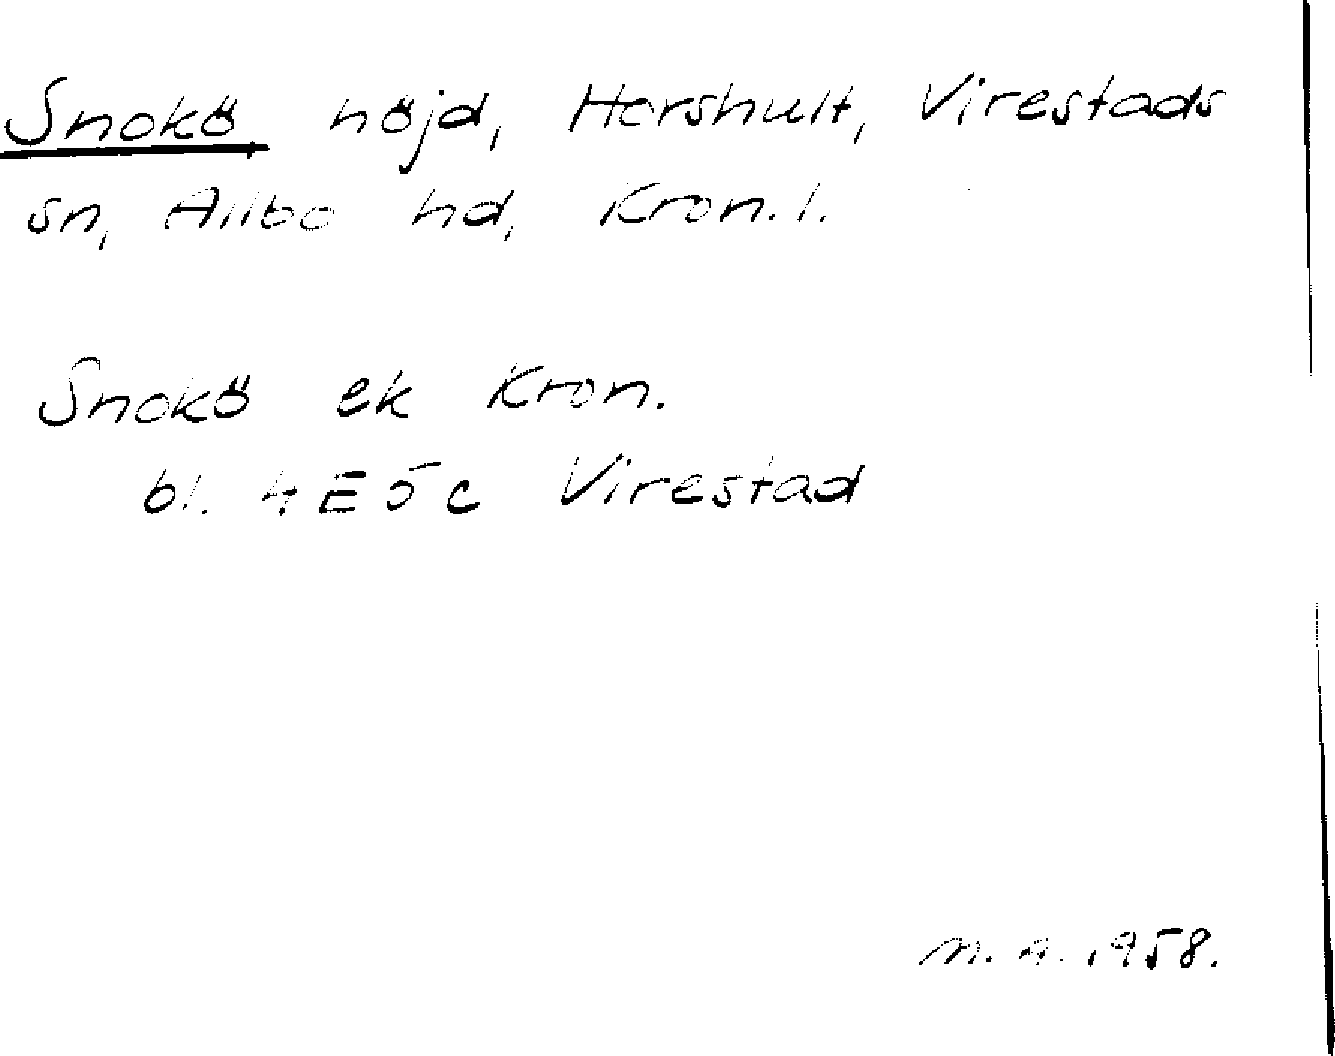 Snokö höjd, Horshult, Virestads
sn, Allbo hd, Kron. l.
Snokö ek Kron.
bl. 4E5c Virestad
M. A. 1958.